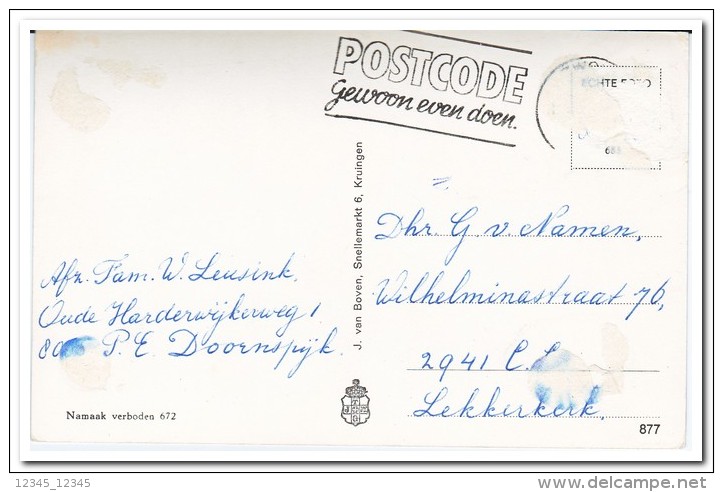 POSTCODE
gewoon even doen.
ECHTE FOTO
Dhr. G. v Namen,
Wilhelminastraat 76,
2941 C.
Lekkerkerk.
Afz. Fam. W. Leusink.
Oude Harderwijkerweg 1
P.E. Doornspijk.
J. van Boven, Snellemarkt 6, Kruingen
Namaak verboden 672
877
12345_12345